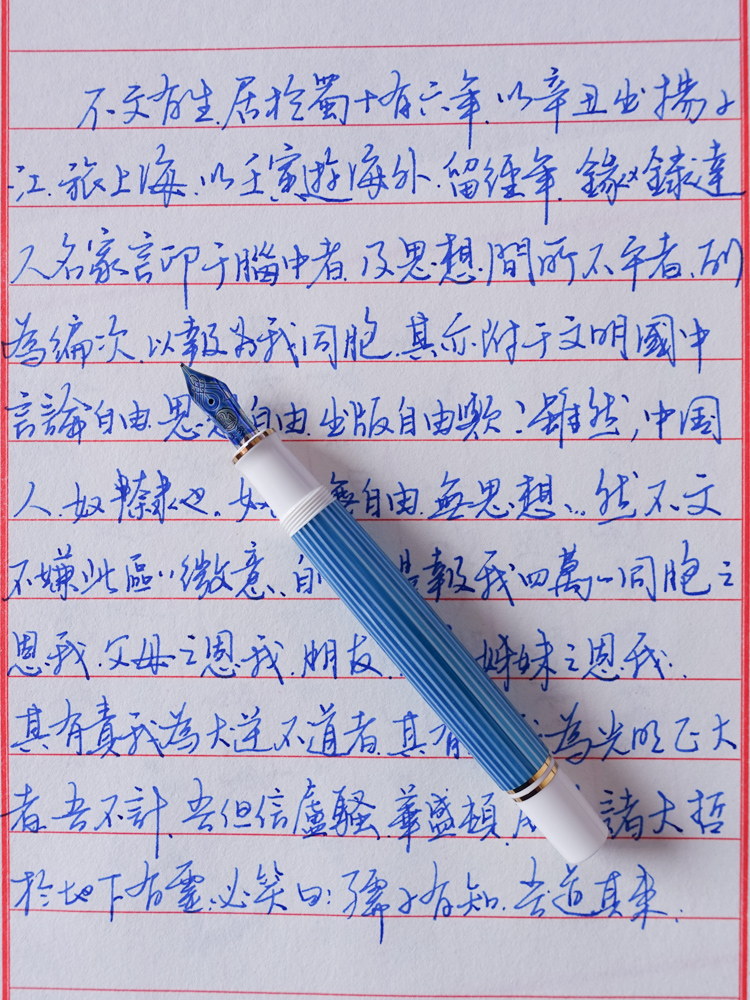 不文有生.居於蜀十有六年.以辛丑出揚子
江.旅上海.以壬寅遊海外.留經年.錄達
人名家言印于腦中者.及思想間所不平者.列
為編次.以報我同胞.其亦附于文明國中
言論自由.思自由.出版自由歟?雖然,中国
人.奴隸也.奴無自由.無思想.然不文
不嫌此區〻微意.自是報我四萬〻同胞之
恩我.父母之恩我.朋友姊妹之恩我.
其有責我為大逆不道者.其有為光明正大
者.吾不計.吾但信盧騷.華盛頓.諸大哲
於地下有靈.必笑曰:孺子有知.吾道其東.